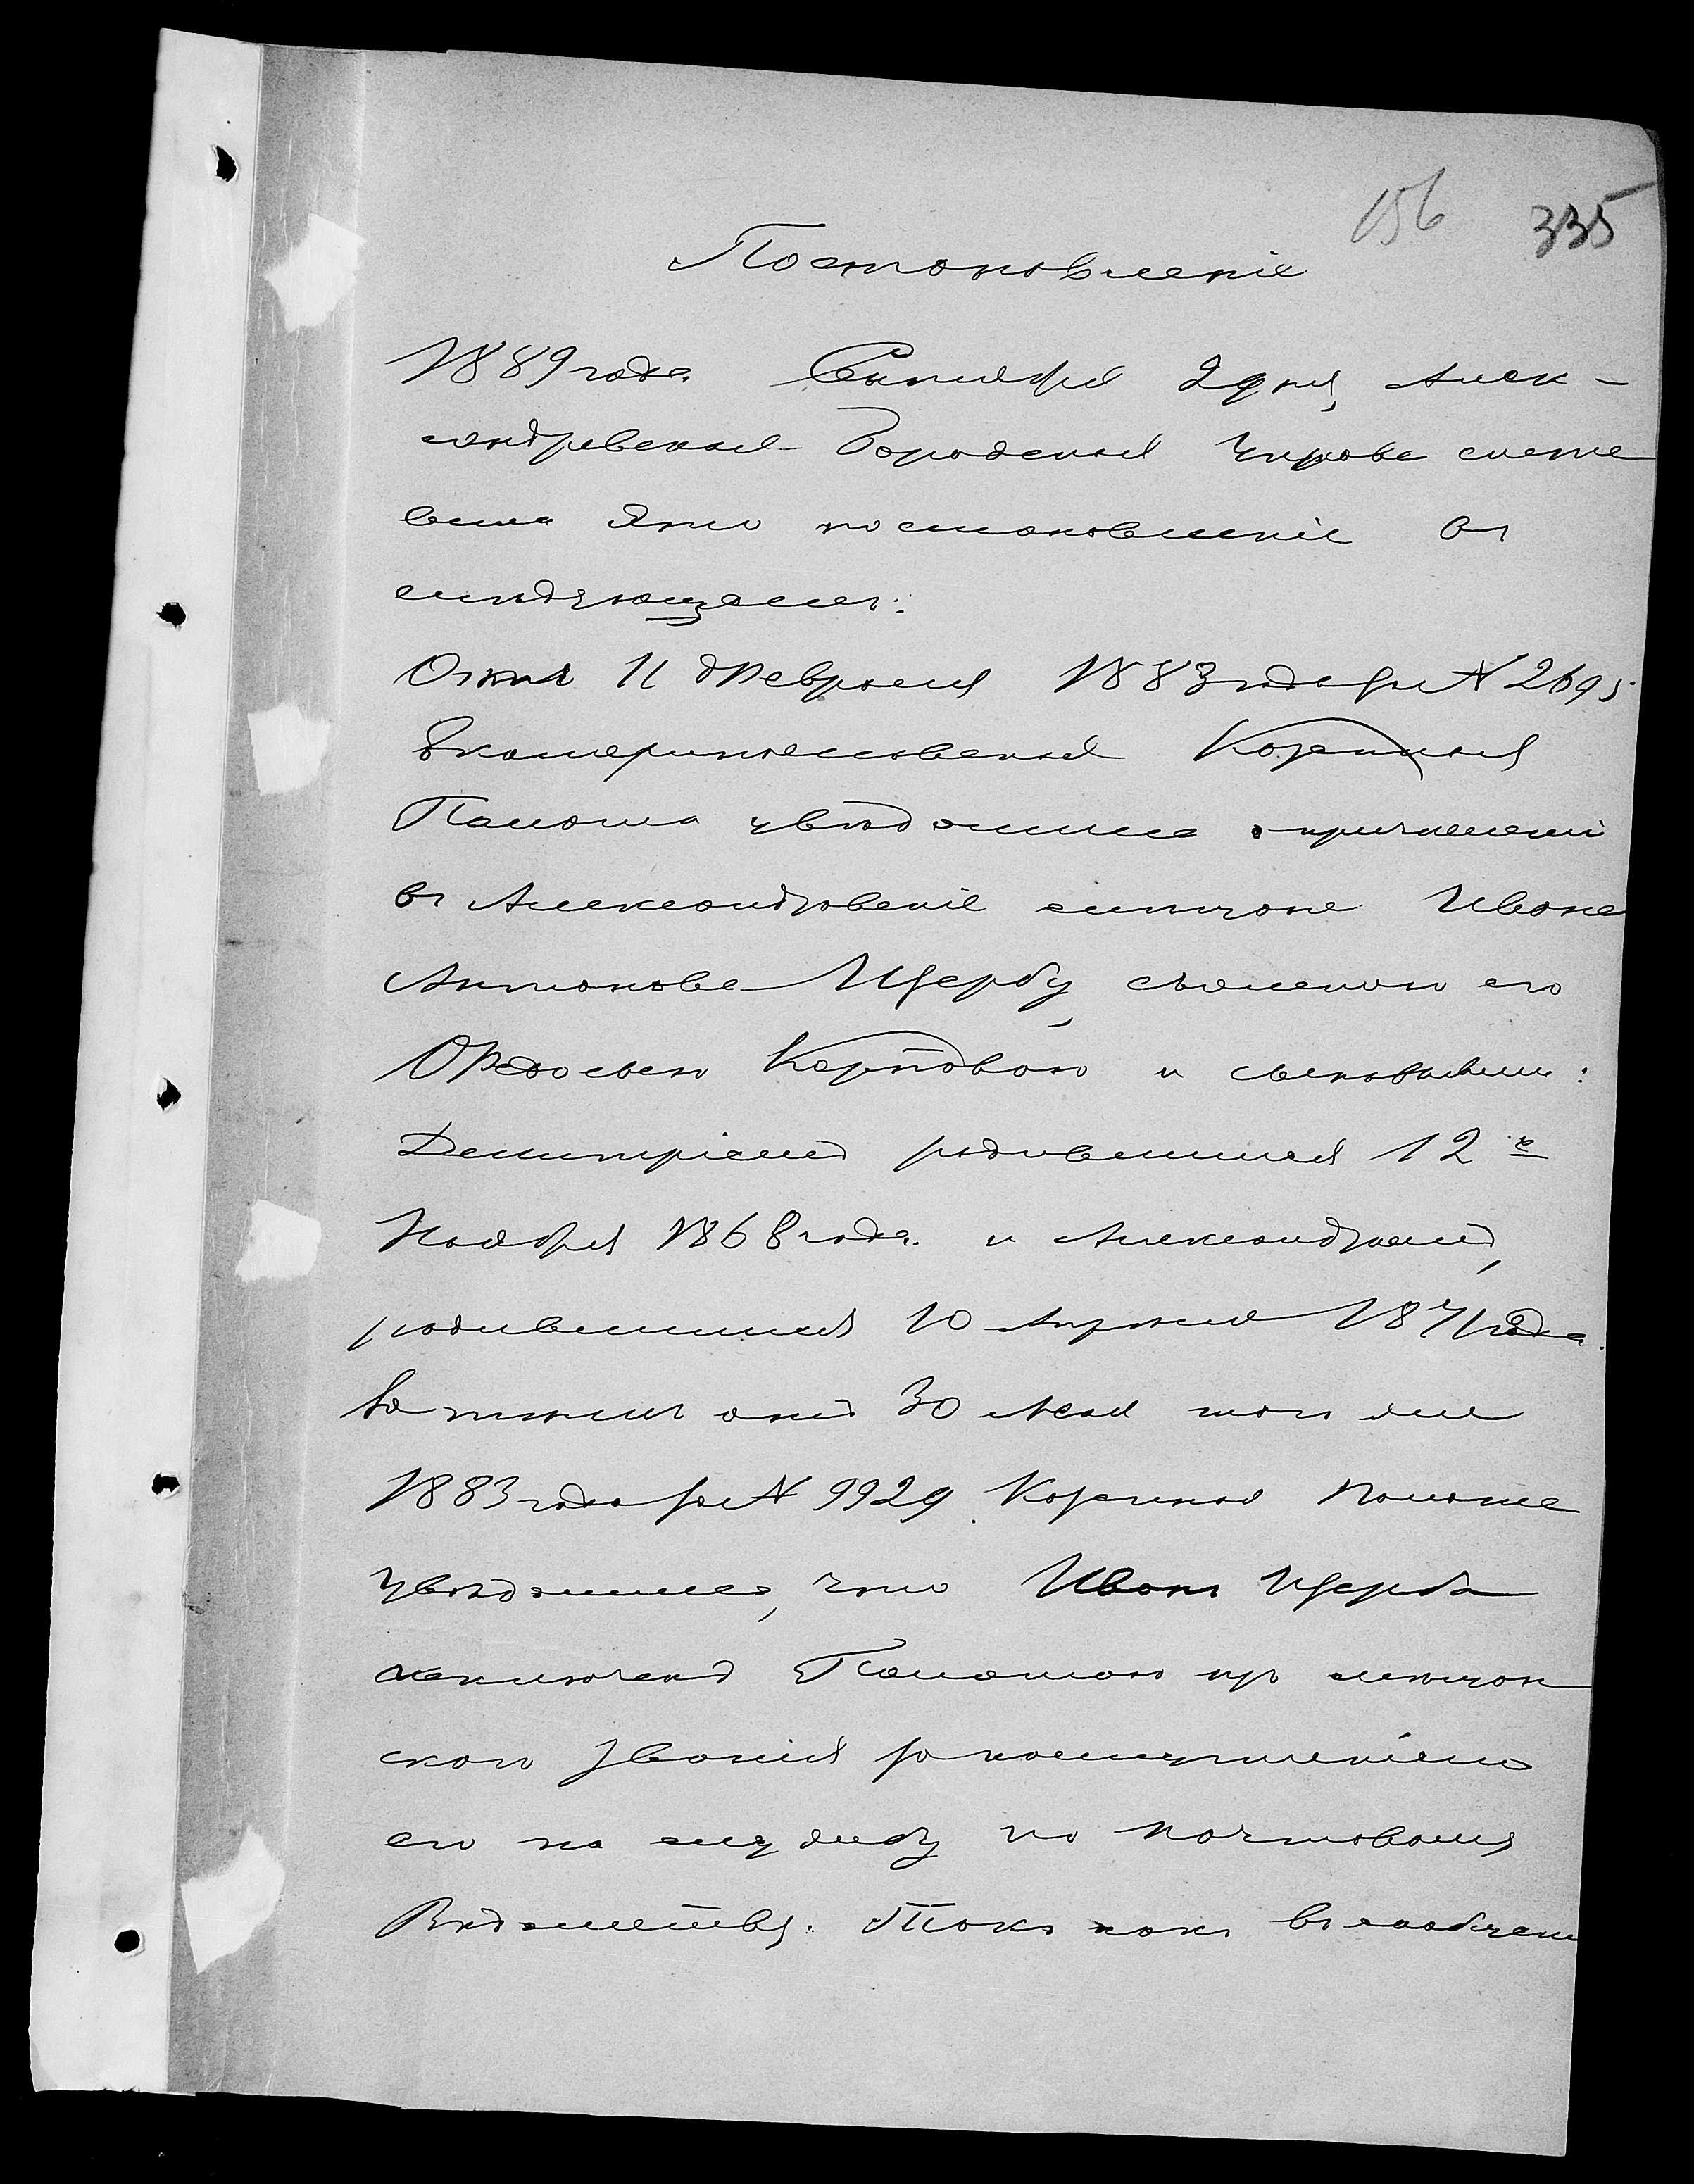 156 335
Постановленіе
1889 года Сентября 2 дня, Алек-
сандровская Городская Управа соста
вила это постановленіе въ
слѣдующемъ:
Отъ 11 Февраля 1883 года за № 2695
Екатеринославская Казенная
Палата увѣдомила о причисленіи
въ Александровскіе мѣщане Ивана
Антонова Щербу, съ женою его
Федосьею Карповою и сыновьями:
Димитріемъ родившимся 12 е
Ноября 1868 года и Александромъ,
родившимся 10 Апрѣля 1871 года.
Затѣмъ отъ 30 Мая того же
1883 года за № 9929 Казенная Палата
увѣдомила, что Иванъ Щерба
исключенъ Палатою изъ мѣщан
скаго званія за поступленіемъ
его на службу по почтовому
Вѣдомству. Такъ какъ въ сообщеніи